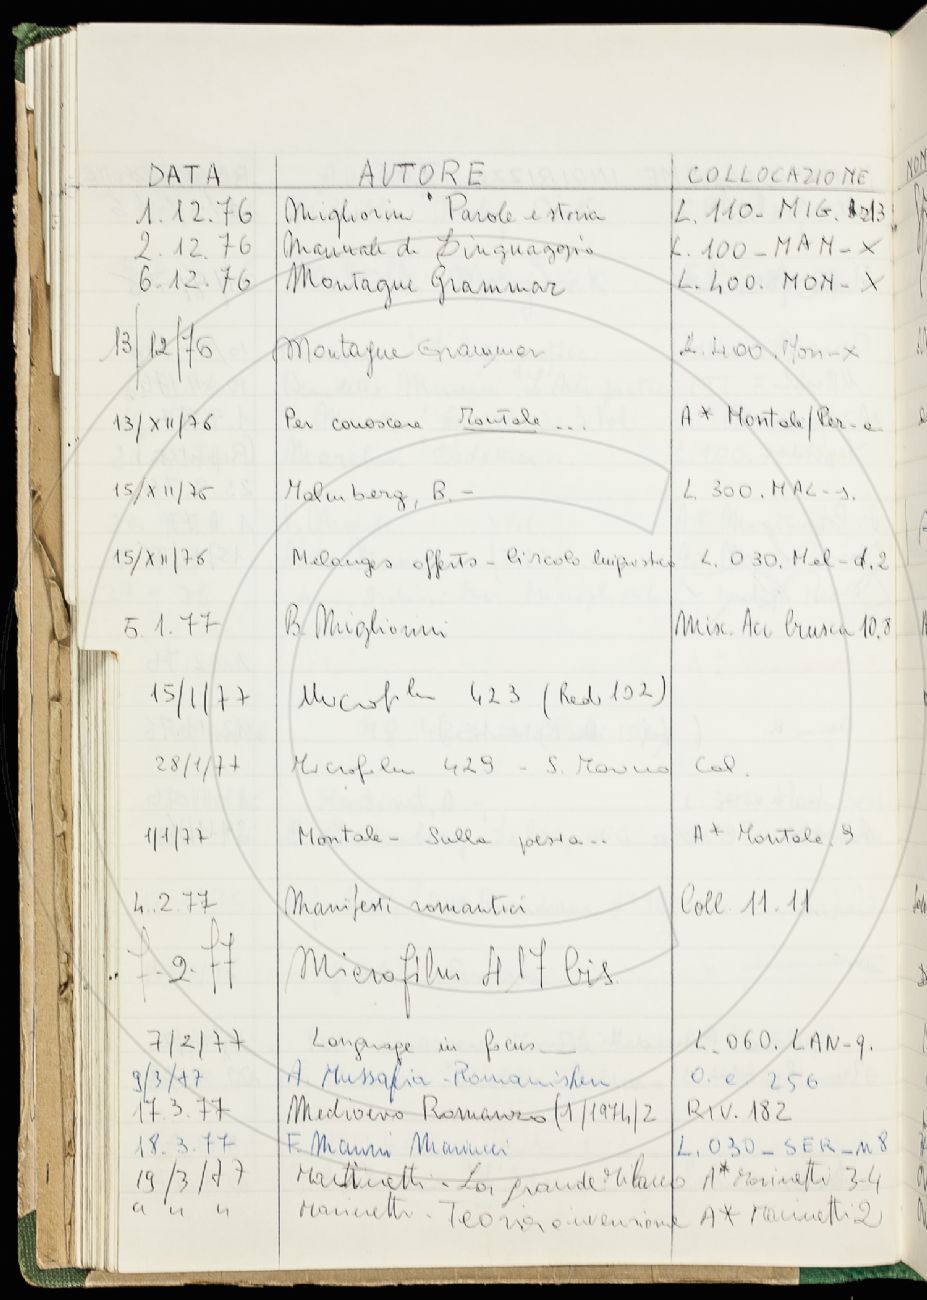 DATA AUTORE COLLOCAZIONE
1.12.76 Migliorini "Parole e storia L. 110- MIG. 13
2.12.76 Manuale di Linguaggio L. 100-MAN-X
6.12.76 Montague Grammar L.400. MON-X
13/12/76 Montague Grammar L.400.Mon-X
13/XII/76 Per conoscere Montale ... A* Montale/Per-
15/XII/76 Malmberg, B. - L. 300. MAL-
15/XII/76 Melanges offerts - Circolo linguistico L. 030. Mel-d.2
5.1.77 B. Migliorini Misc. Acc Crusca 10.8
15/1/77 Microfilm 423 (Redi 102)
28/1/77 Microfilm 429 - S. Marino Col.
1/1/77 Montale - Sulla poesia .. A* Montale.9
4.2.77 Manifesti romantici Coll. 11.11
7.2.77 Microfilm 417 bis
7/2/77 Language in focus L.060. LAN-9.
9/3/77 A. Mussafia-Romanischen O. e. 256
17.3.77 Medioevo Romanzo (1/1974)2 RIV. 182
18.3.77 F. Marri L.030-SER-n8
19/3/77 Marinetti - La grande Milano A* Marinetti 3-4
" " " Marinetti - Teoria e invenzione A* Marinetti 2